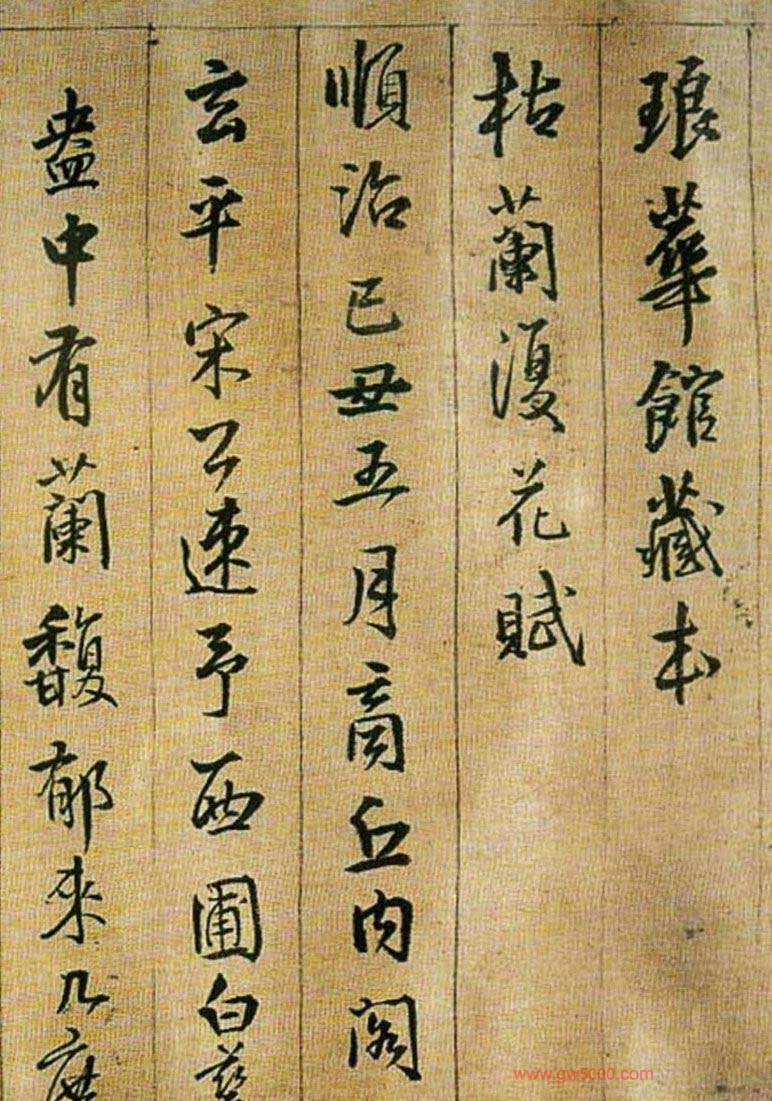 琅華館藏本
枯蘭復花賦
順治己丑五月商丘内閣
玄平宋公速予西圃白
盎中有蘭馥郁來几
www.gw5000.com